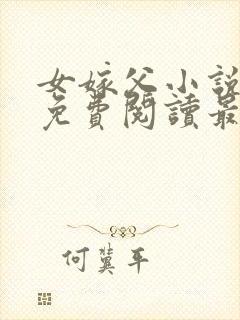 女嫁父小說
免費閱讀最
何冀平